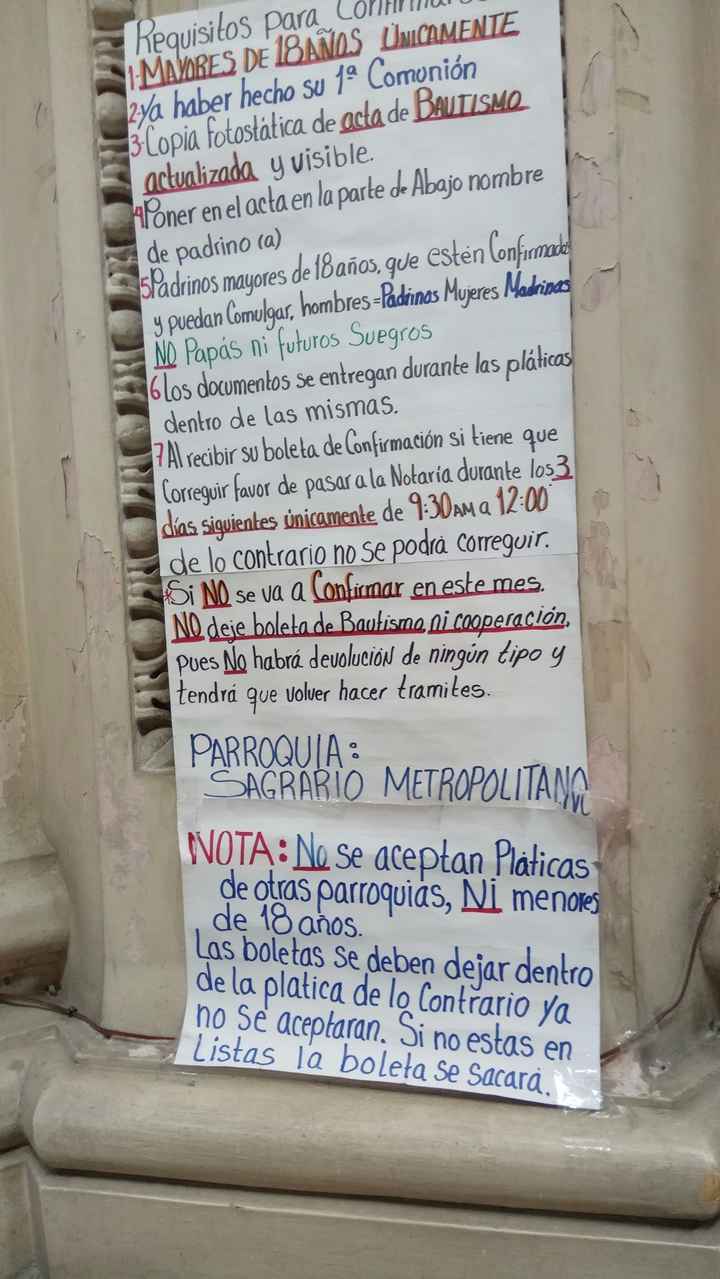 Requisitos para
1-MAYORES DE 18 AÑOS ÚNICAMENTE
2-Ya haber hecho su 1ª Comunión
3-Copia fotostática de acta de BAUTISMO
actualizada y visible.
4 Poner en el acta en la parte de Abajo nombre
de padrino (a)
5 Padrinos mayores de 18 años, que estén Confirmados
y puedan Comulgar, hombres = Padrinos Mujeres Madrinas
NO Papás ni futuros Suegros
6 Los documentos se entregan durante las pláticas
dentro de las mismas.
7 Al recibir su boleta de Confirmación si tiene que
Correguir favor de pasar a la Notaría durante los 3
días siguientes únicamente de 9:30 AM a 12:00
de lo contrario no se podrá correguir.
*Si NO se va a Confirmar en este mes.
NO deje boleta de Bautismo ni cooperación,
pues No habrá devolución de ningún tipo y
tendrá que volver hacer tramites.
PARROQUIA:
SAGRARIO METROPOLITANO
NOTA: No se aceptan Pláticas
de otras parroquias, Ni menores
de 18 años.
Las boletas se deben dejar dentro
de la platica de lo Contrario ya
no se aceptaran. Si no estas en
Listas la boleta se sacará.